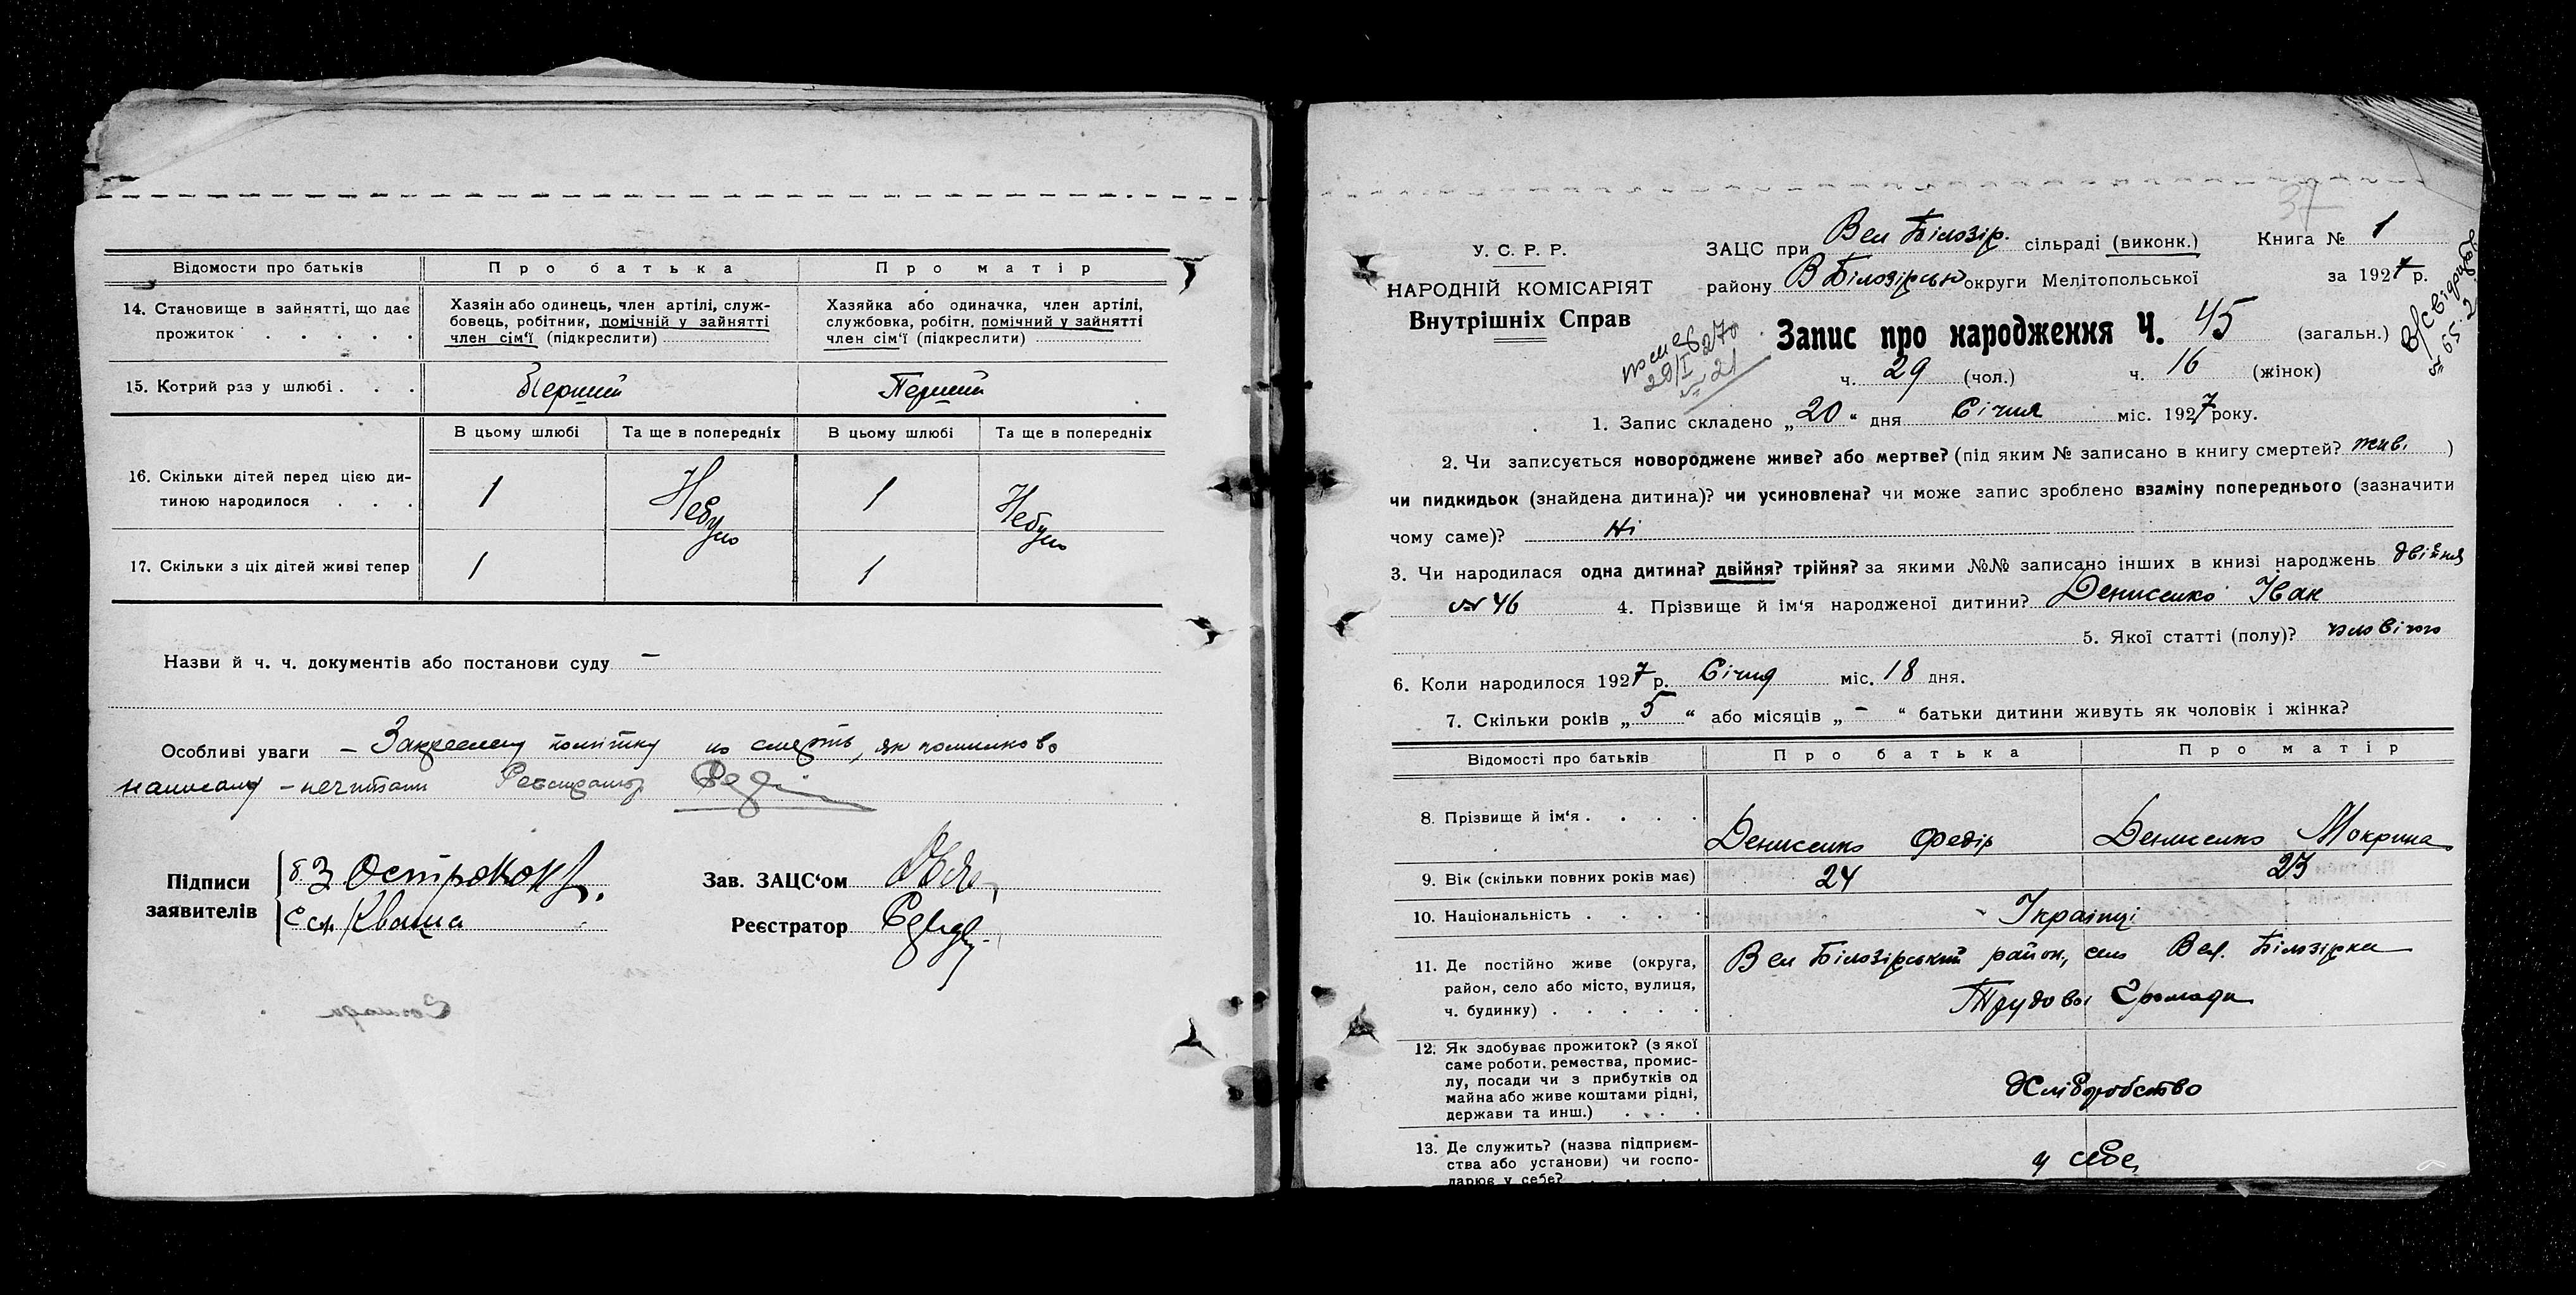 Відомости про батьків
Про батька
Про матір
14. Становище в зайнятті, що дає
прожиток . . . . .
Хазяін або одинець, член артілі, служ-
бовець, робітник, помічній у зайнятті
член сім'ї (підкреслити)
Хазяйка або одиначка, член артілі,
службовка, робітн. помічний у зайнятті
член сім'ї (підкреслити)
15. Котрий раз у шлюбі . . .
Перший
Перший
В цьому шлюбі
Та ще в попередніх
В цьому шлюбі
Та ще в попередніх
16. Скільки дітей перед цією ди-
тиною народилося . . .
1
Небуло
1
Небуло
17. Скільки з ціх дітей живі тепер
1
1
Назви й ч. ч. документів або постанови суду —
Особливі уваги — Закреслену помітку по смерть, як помилково
написану — нечитати Реєстратор
Підписи
заявителів
З Остроконь
Кваша
Зав. ЗАЦС'ом
Реєстратор
37
У. С. Р. Р.
НАРОДНІЙ КОМІСАРІЯТ
Внутрішніх Справ
ЗАЦС при Вел Білозір. сільраді (виконк.)
Книга № 1
району В Білозірськ округи Мелітопольської
за 1927 р.
Запис про народження Ч. 45 (загальн.)
ч. 29 (чол.) ч. 16 (жінок)
1. Запис складено „20“ дня Січня міс. 1927 року.
2. Чи записується новороджене живе? або мертве? (під яким № записано в книгу смертей? жив. )
чи пидкидьок (знайдена дитина)? чи усиновлена? чи може запис зроблено взаміну попереднього (зазначити
чому саме)? Ні
3. Чи народилася одна дитина? двійня? трійня? за якими №№ записано інших в книзі народжень двійня
№ 46 4. Прізвище й ім'я народженої дитини? Денисенко Іван
5. Якої статті (полу)? чоловічого
6. Коли народилося 1927 р. Січня міс. 18 дня.
7. Скільки років „5“ або місяців „-“ батьки дитини живуть як чоловік і жінка?
Відомості про батьків
Про батька
Про матір
8. Прізвище й ім'я . . . .
Денисенко Федір
Денисенко Мокрина
9. Вік (скільки повних років має)
24
23
10. Національність . . . .
Українці
11. Де постійно живе (округа,
район, село або місто, вулиця,
ч. будинку) . . . . .
Вел Білозірський район, село Вел. Білозірка
Трудової Громади
12. Як здобуває прожиток? (з якої
саме роботи, ремества, промис-
лу, посади чи з прибутків од
майна або живе коштами рідні,
держави та инш.) . . . .
Хліборобство
13. Де служить? (назва підприєм-
ства або установи) чи госпо-
дарює у себе? . . . .
у себе